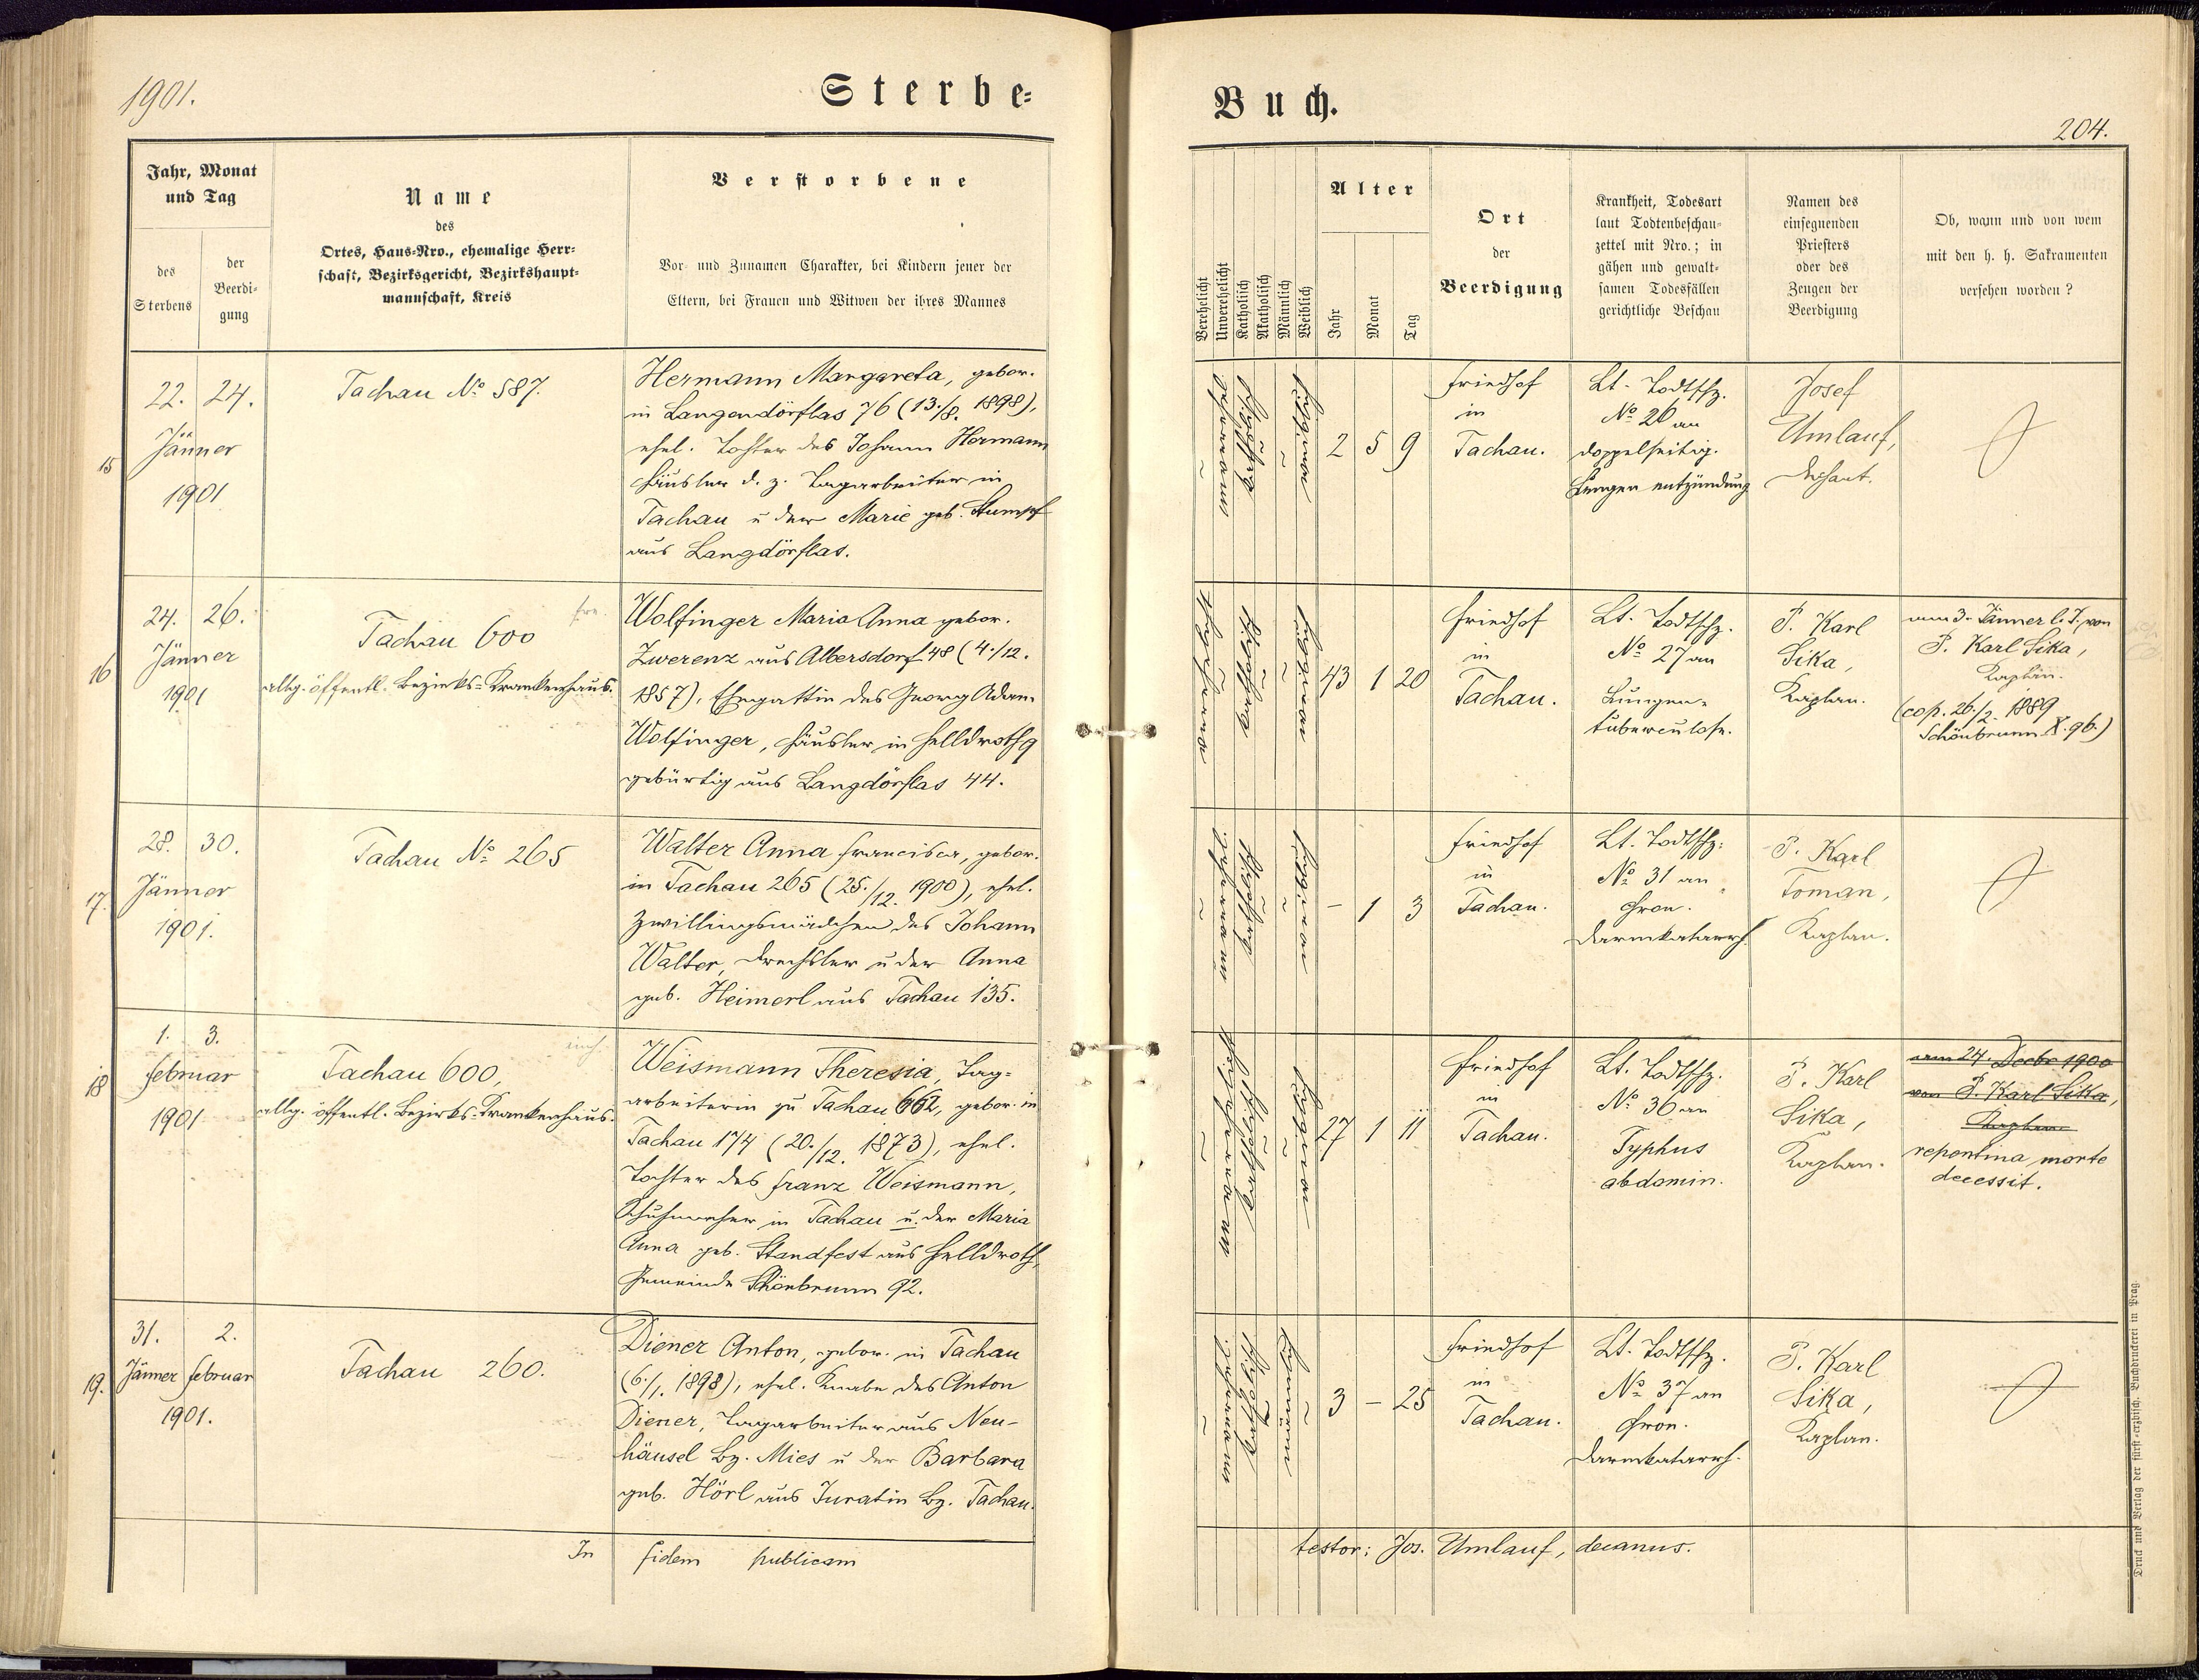 1901.
Sterbe-
Buch.
204.
Jahr, Monat
und Tag
des
Sterbens
der
Beerdi-
gung
Name
des
Ortes, Haus-Nro., ehemalige Herr-
schaft, Bezirksgericht, Bezirkshaupt-
mannschaft, Kreis
Verstorbene
Vor- und Zunamen Charakter, bei Kindern jener der
Eltern, bei Frauen und Witwen der ihres Mannes
Verehelicht
Unverehelicht
Katholisch
Akatholisch
Männlich
Weiblich
Alter
Jahr
Monat
Tag
Ort
der
Beerdigung
Krankheit, Todesart
laut Todtenbeschau-
zettel mit Nro.; in
gähen und gewalt-
samen Todesfällen
gerichtliche Beschau
Namen des
einsegnenden
Priesters
oder des
Zeugen der
Beerdigung
Ob, wann und von wem
mit den h. h. Sakramenten
versehen worden?
15
22. 24.
Jänner
1901
Tachau No 587.
Hermann Margareta, gebor.
in Langendörflas 76 (13./8. 1898),
ehel. Tochter des Johann Hermann
Häusler d. z. Tagarbeiter in
Tachau u der Marie geb. Stumpf
aus Langdörflas.
unverehel.
katholisch
weiblich
2 5 9
Friedhof
in
Tachau.
Lt. Todtschz.
No 26 an
doppelseitig.
Lungenentzündung
Josef
Umlauf,
Dechant.
16
24. 26.
Jänner
1901
Tachau 600
allg. öffentl. Bezirks-Krankenhaus.
Wolfinger Maria Anna gebor.
Zwerenz aus Albersdorf 48 (4./12.
1857), Ehegattin des Georg Adam
Wolfinger, Häusler in Helldroth 9
gebürtig aus Langdörflas 44.
43 1 20
Friedhof
in
Tachau.
Lt. Todtschz.
No 27 an
Lungen-
tuberculose.
P. Karl
Sika,
Kaplan.
am 3. Jänner l. J. von
P. Karl Sika,
Kaplan.
(cop. 26./2. 1889
Schönbrunn X. 96.)
17.
28. 30.
Jänner
1901.
Tachau No 265
Walter Anna Francisca, gebor.
in Tachau 265 (25./12. 1900), ehel.
Zwillingsmädchen des Johann
Walter, Drechsler u der Anna
geb. Heimerl aus Tachau 135.
- 1 3
Friedhof
in
Tachau.
Lt. Todtschz.
No 31 an
chron.
Darmkatarrh.
P. Karl
Toman,
Kaplan.
18
1. 3.
Februar
1901
Tachau 600,
allg. öffentl. Bezirks-Krankenhaus.
Weismann Theresia, Tag-
arbeiterin zu Tachau 662, gebor. in
Tachau 174 (20./12. 1873), ehel.
Tochter des Franz Weismann,
Schuhmacher in Tachau u. der Maria
Anna geb. Standfest aus Helldroth,
Gemeinde Schönbrunn 92.
27 1 11
Friedhof
in
Tachau.
Lt. Todtschz.
No 36 an
Typhus
abdomin.
P. Karl
Sika,
Kaplan.
am 24. Decbr 1900
von P. Karl Sika,
Kaplan
repentina morte
decessit.
19.
31. 2.
Jänner Februar
1901.
Tachau 260.
Diener Anton, gebor. in Tachau
(6./1. 1898), ehel. Knabe des Anton
Diener, Tagarbeiter aus Neu-
häusel Bz. Mies u der Barbara
geb. Hörl aus Juratin Bz. Tachau.
3 - 25
Friedhof
in
Tachau.
Lt. Todtschz.
No 37 an
chron.
Darmkatarrh.
P. Karl
Sika,
Kaplan.
In fidem publicam testor: Jos. Umlauf, decanus.
Druck und Verlag der fürst-erzbisch. Buchdruckerei in Prag